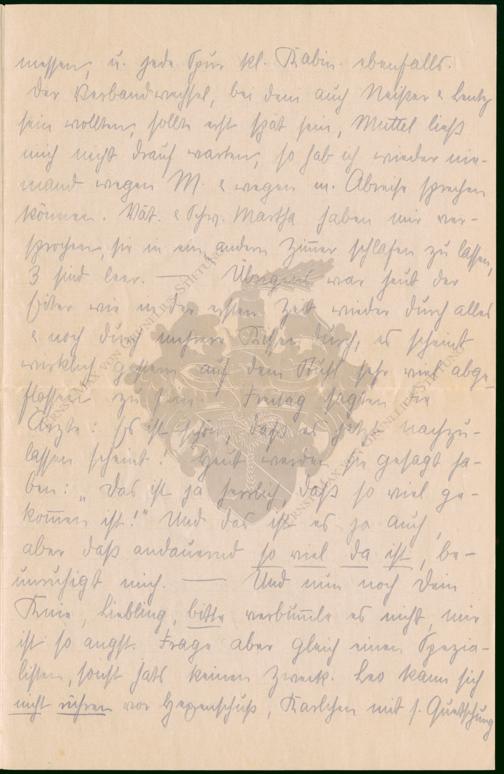 messen, u. jede Spur kl. Kabin. ebenfalls.
Der Verbandwechsel, bei dem auch Neißer & Lentz
sein wollten, sollte erst spät sein, Muttel ließ
mich nicht drauf warten, so hab ich wieder nie-
mand wegen M. & wegen m. Abreise sprechen
können. Vät. & Schw. Martha haben mir ver-
sprochen, sie in ein. andern Zimmer schlafen zu lassen,
3 sind leer. — Übrigens war heut der
Eiter wie in der ersten Zeit wieder durch alles
& noch durch mehrere Kissen durch, es scheint
wirklich gestern auf dem Stuhl sehr viel abge-
flossen zu sein. Freitag sagten die
Ärzte: „Es ist schön, daß es jetzt nachzu-
lassen scheint." Heut werden sie gesagt ha-
ben: „Das ist ja herrlich, daß so viel ge-
kommen ist!" Und das ist es ja auch,
aber daß andauernd so viel da ist, be-
unruhigt mich. — Und nun noch Dein
Knie, Liebling, bitte verbumle es nicht, mir
ist so angst. Frage aber gleich einen Spezia-
listen, sonst hats keinen Zweck. Leo kann sich
nicht rühren vor Hexenschuß, Karlchen mit s. Quetschung
ERNST MAX VON GRUNELIUS-STIFTUNG